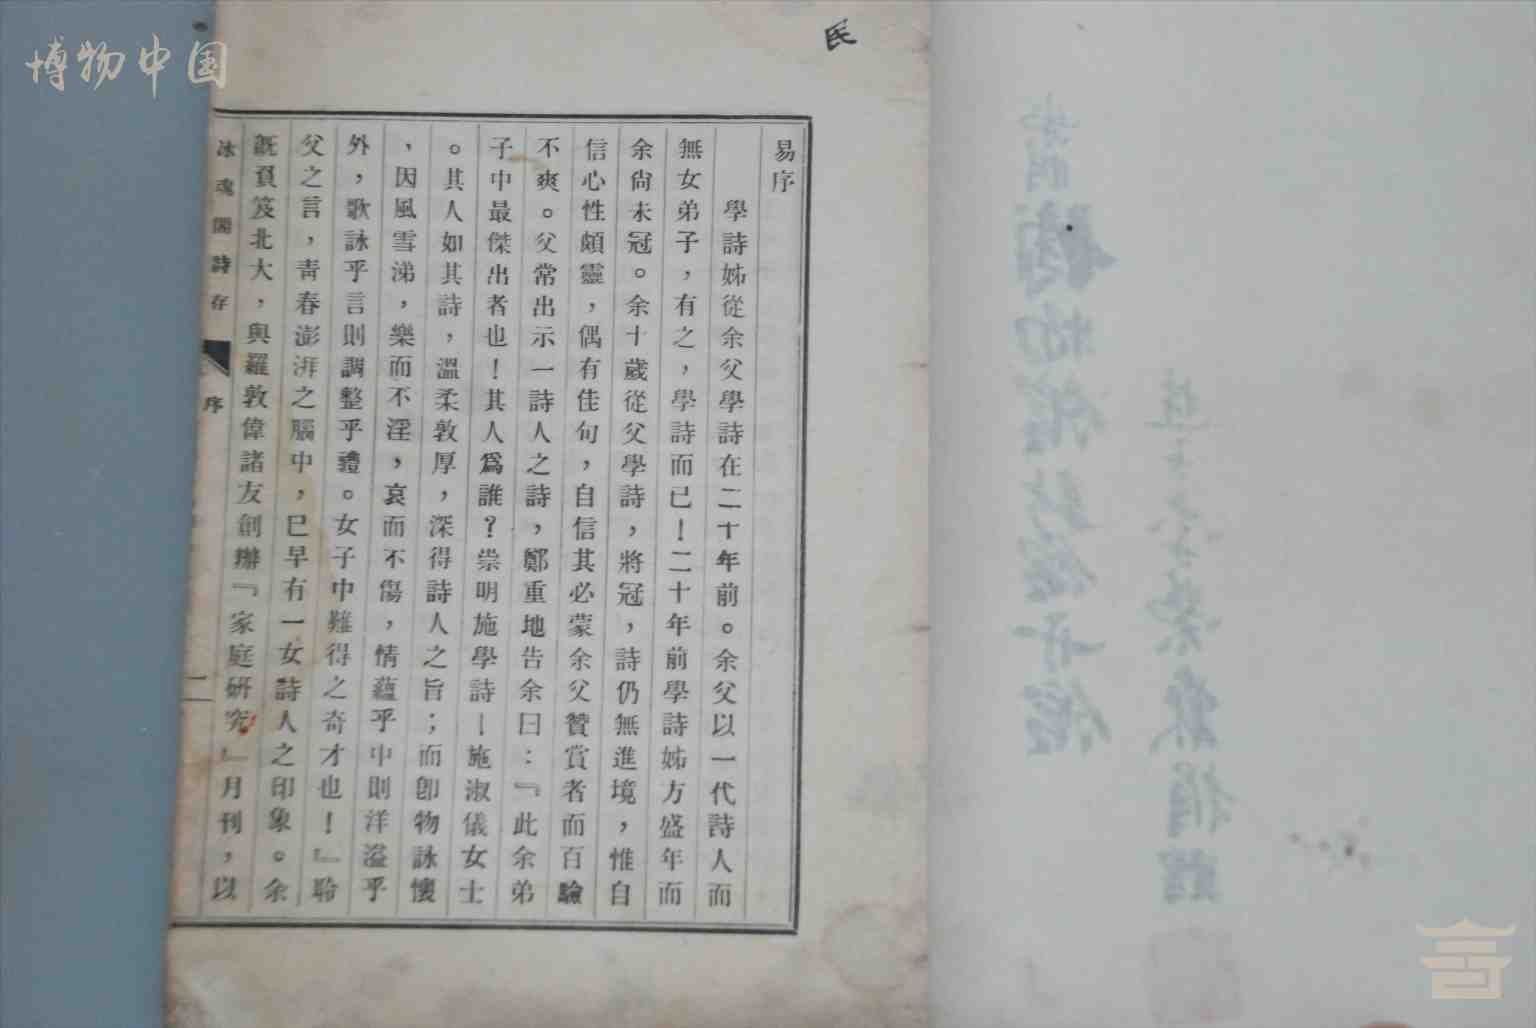 博物中国
民
易序
學詩姊從余父學詩在二十年前。余父以一代詩人而
無女弟子，有之，學詩而已！二十年前學詩姊方盛年而
余尙未冠。余十歲從父學詩，將冠，詩仍無進境，惟自
信心性頗靈，偶有佳句，自信其必蒙余父贊賞者而百驗
不爽。父常出示一詩人之詩，鄭重地告余曰：『此余弟
子中最傑出者也！其人爲誰？崇明施學詩—施淑儀女士
。其人如其詩，溫柔敦厚，深得詩人之旨；而卽物詠懷
，因風雪涕，樂而不淫，哀而不傷，情蘊乎中則洋溢乎
外，歌詠乎言則調整乎禮。女子中難得之奇才也！』聆
父之言，靑春澎湃之腦中，已早有一女詩人之印象。余
旣負笈北大，與羅敦偉諸友創辦『家庭研究』月刊，以
冰魂閣詩存
序
一